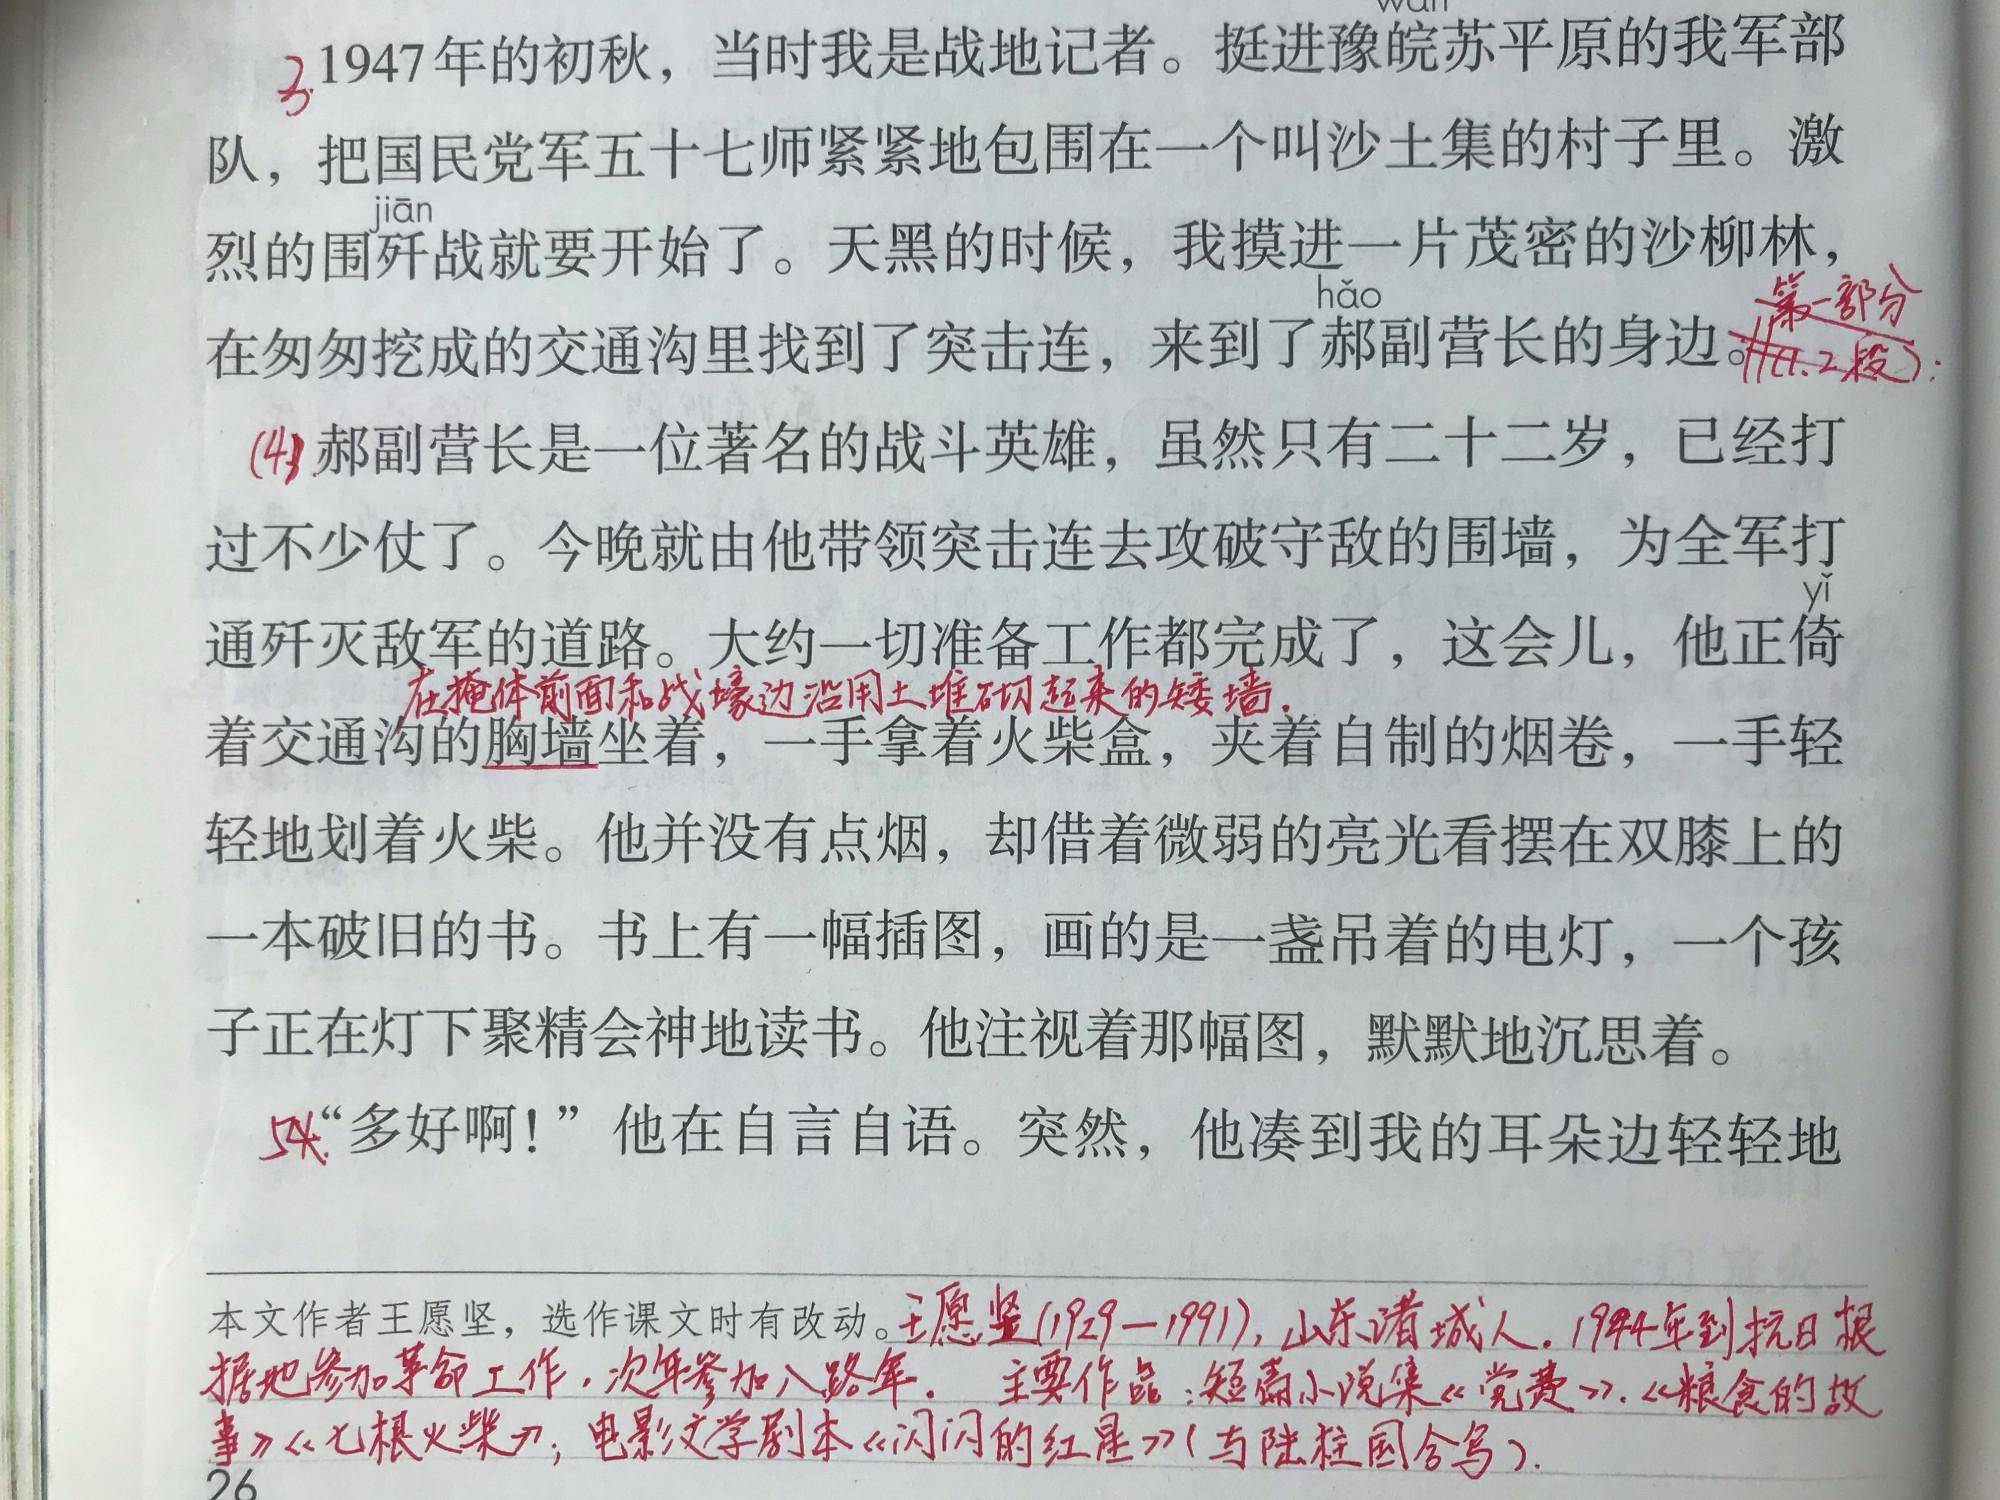 wǎn
3. 1947年的初秋，当时我是战地记者。挺进豫皖苏平原的我军部
队，把国民党军五十七师紧紧地包围在一个叫沙土集的村子里。激
jiān
烈的围歼战就要开始了。天黑的时候，我摸进一片茂密的沙柳林，
hǎo
第一部分
在匆匆挖成的交通沟里找到了突击连，来到了郝副营长的身边。
(1.2段)：
(4) 郝副营长是一位著名的战斗英雄，虽然只有二十二岁，已经打
过不少仗了。今晚就由他带领突击连去攻破守敌的围墙，为全军打
yǐ
通歼灭敌军的道路。大约一切准备工作都完成了，这会儿，他正倚
在掩体前面和战壕边沿用土堆砌起来的矮墙.
着交通沟的胸墙坐着，一手拿着火柴盒，夹着自制的烟卷，一手轻
轻地划着火柴。他并没有点烟，却借着微弱的亮光看摆在双膝上的
一本破旧的书。书上有一幅插图，画的是一盏吊着的电灯，一个孩
子正在灯下聚精会神地读书。他注视着那幅图，默默地沉思着。
“多好啊！”他在自言自语。突然，他凑到我的耳朵边轻轻地
本文作者王愿坚，选作课文时有改动。王愿坚(1929—1991), 山东诸城人. 1944年到抗日根
据地参加革命工作, 次年参加八路军. 主要作品:短篇小说集《党费》.《粮食的故
事》《七根火柴》; 电影文学剧本《闪闪的红星》(与陆柱国合写).
26